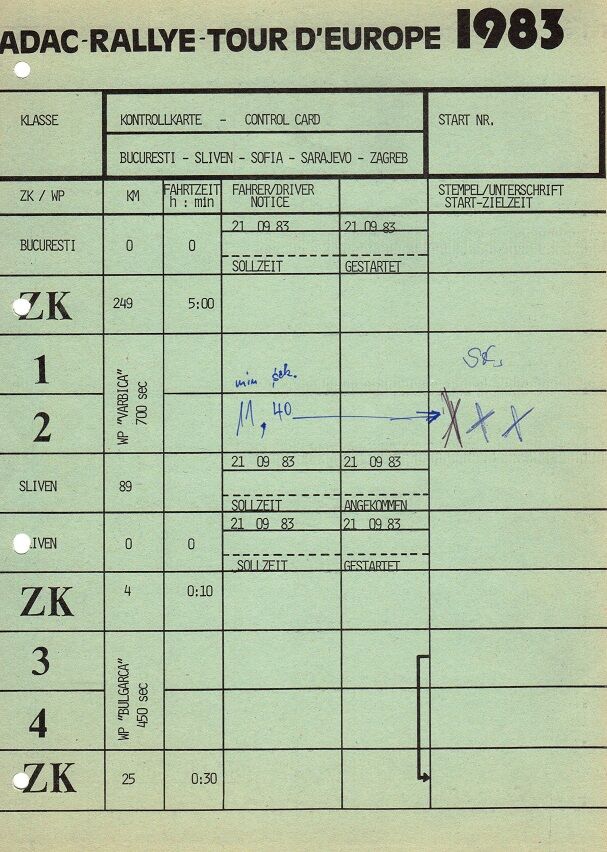 ADAC-RALLYE-TOUR D'EUROPE 1983
KLASSE
KONTROLLKARTE - CONTROL CARD
START NR.
BUCURESTI - SLIVEN - SOFIA - SARAJEVO - ZAGREB
ZK / WP
KM
FAHRTZEIT
h : min
FAHRER/DRIVER
NOTICE
STEMPEL/UNTERSCHRIFT
START-ZIELZEIT
21 09 83 21 09 83
BUCURESTI 0 0
SOLLZEIT GESTARTET
ZK 249 5:00
1
WP "VARBICA"
700 sec
min sek.
2
11,40 X X X
21 09 83 21 09 83
SLIVEN 89
SOLLZEIT ANGEKOMMEN
21 09 83 21 09 83
IVEN 0 0
SOLLZEIT GESTARTET
ZK 4 0:10
3
WP "BULGARCA"
450 sec
4
ZK 25 0:30